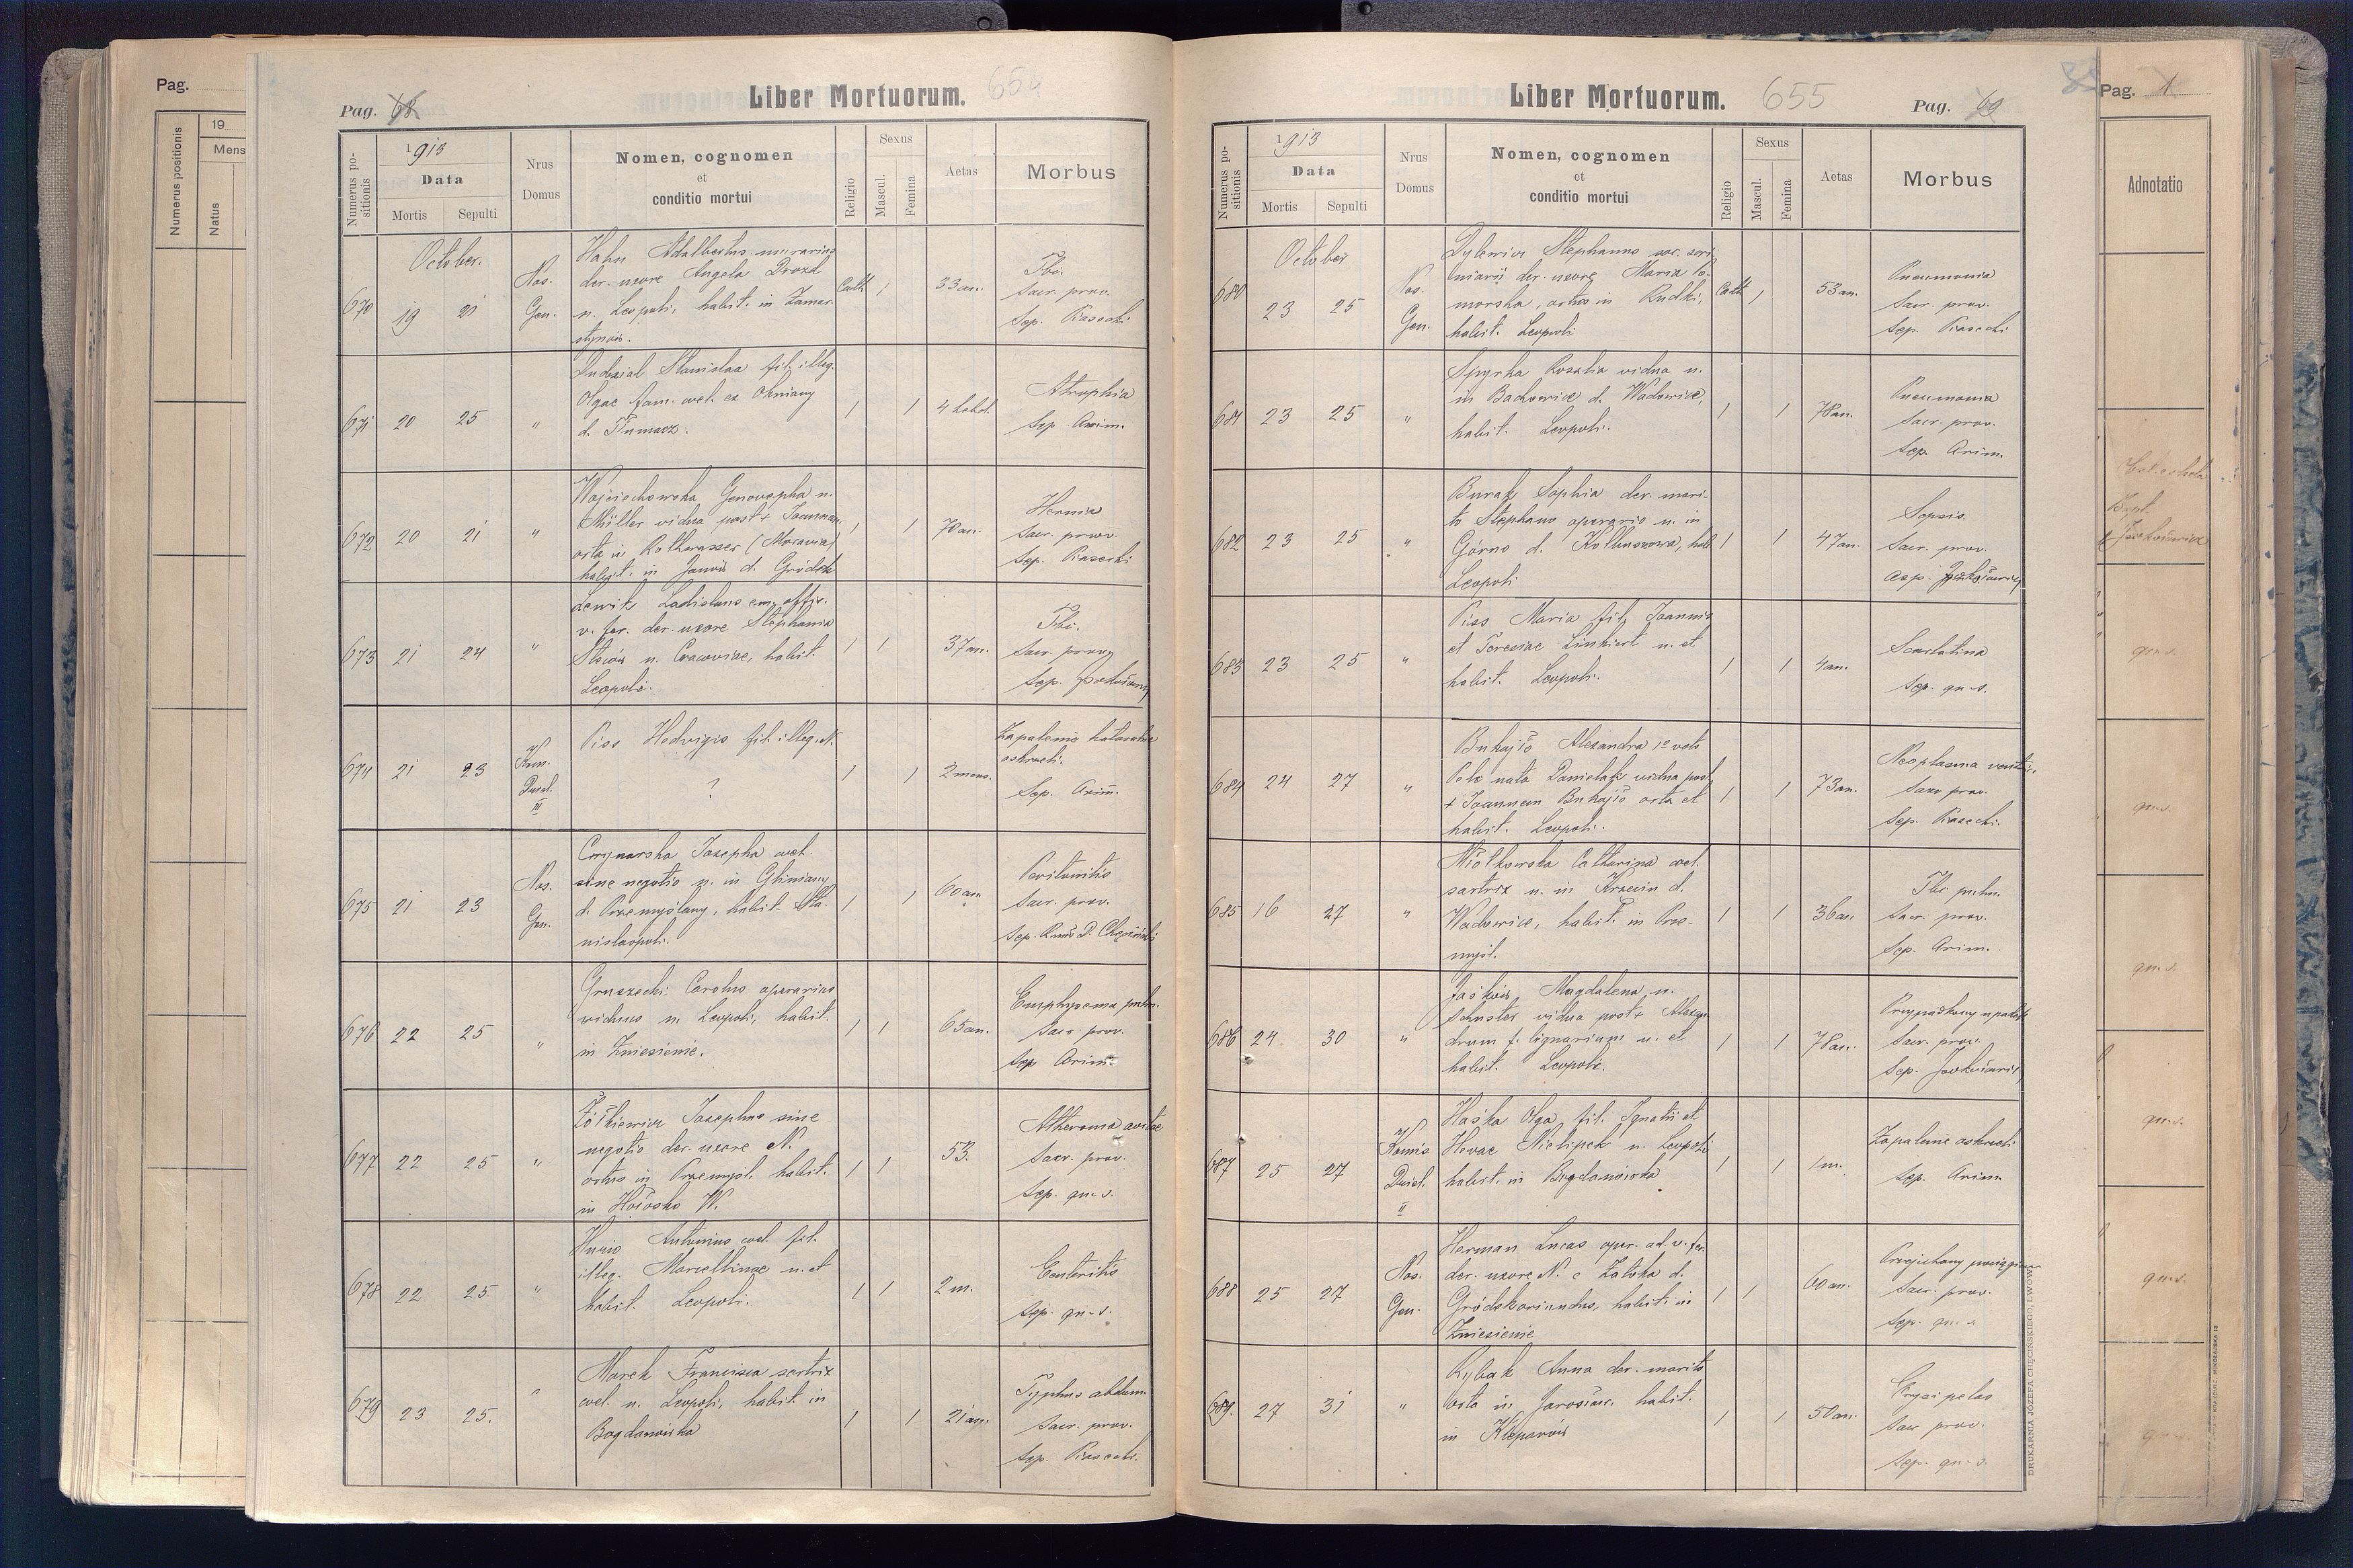 Pag.
Numerus positionis
19
Mens
Natus
Pag. 68
Liber Mortuorum. 654
Numerus positionis
1913
Data
Mortis
Sepulti
Nrus
Domus
Nomen, cognomen
et
conditio mortui
Religio
Sexus
Mascul.
Femina
Aetas
Morbus
October.
670 19 21
Nos.
Gen.
Hahn Adalbertus murarius
der. uxore Angela Drozd
n. Leopoli, habit. in Zamar-
stynów.
Cath 1 33 an.
Tbc.
Sacr. prov.
Sep. Piasecki
671 20 25 "
Stanislaa fil. illeg.
Olgae fam. coel. ex
d. Tłumacz.
1 1 4 hebd.
Atrophia
Sep. Arim.
672 20 21 "
Wojciechowska Genovepha n.
Müller vidua post + Joannem,
orta in Rothwasser (Moravia)
habit. in Janów d. Gródek
1 1 70 an.
Hernia
Sacr. prov.
Sep. Piasecki
673 21 24 "
Lewik Ladislaus em. offic.
v. fer. der. uxore Stephania
n. Cracoviae, habit.
Leopoli.
1 1 37 an.
Tbc.
Sacr. prov.
Sep.
674 21 23
Kom.
Dziel.
III
Piss Hedvigis fil. illeg. N.
?
1 1 2 mens.
Zapalenie
oskrzeli.
Sep. Arim.
675 21 23
Nos.
Gen.
Josepha coel.
sine negotio n. in Gliniany
d. Przemyślany, habit. Sta-
nislaopoli.
1 1 60 an
Peritonitis
Sacr. prov.
Sep.
676 22 25 "
Gruszecki Carolus operarius
viduus n. Leopoli, habit.
in Zniesienie.
1 1 65 an.
Emphysema pulm.
Sacr. prov.
Sep Arim.
677 22 25 "
Żółkiewicz Josephus sine
negotio der. uxore N.
ortus in Przemyśl, habit.
in Hołosko W.
1 1 53.
Atheroma aortae
Sacr. prov.
Sep. qu. s.
678 22 25 "
Antonius coel. fil.
illeg. Marcellinae n. et
habit. Leopoli.
1 1 2 m.
Enteritis
Sep. qu. s.
679 23 25. "
Marek Francisca sartrix
coel. n. Leopoli, habit. in
Bogdanówka
1 1 21 an.
Typhus abdom.
Sacr. prov.
Sep. Piasecki.
Liber Mortuorum. 655
Pag. 69
Numerus positionis
1913
Data
Mortis
Sepulti
Nrus
Domus
Nomen, cognomen
et
conditio mortui
Religio
Sexus
Mascul.
Femina
Aetas
Morbus
October
680 23 25
Nos.
Gen.
Dylewicz Stephanus
der. uxore Maria Po-
morska, ortus in Rudki,
habit. Leopoli
Cath 1 53 an.
Pneumonia
Sacr. prov.
Sep. Piasecki
681 23 25 "
Spyrka Rosalia vidua n.
in Bachowice d. Wadowice,
habit. Leopoli.
1 1 78 an.
Pneumonia
Sacr. prov.
Sep. Arim.
682 23 25 "
Burak Sophia der. mari-
to Stephano operario n. in
Górno d. Kolbuszowa, hab.
Leopoli
1 1 47 an.
Sepsis.
Sacr. prov.
683 23 25 "
Piss Maria fil. Joannis
et Teresiae n. et
habit. Leopoli.
1 1 4 an.
Scarlatina
Sep. qu. s.
684 24 27 "
Bukajło Alexandra 1º voto
nata Danielak vidua post
+ Joannem Bukajło orta et
habit. Leopoli.
1 1 73 an.
Neoplasma
Sacr prov.
Sep. Piasecki.
685 16 27 "
Catharina coel.
sartrix n. in d.
Wadowice, habit. in Prze-
myśl.
1 1 36 an.
Tbc pulm.
Sacr. prov.
Sep. Arim.
686 24 30 "
Jaśków Magdalena n.
Schuster vidua post + Alexan
drum f. lignarium n. et
habit. Leopoli.
1 1 78 an.
Sacr. prov.
Sep.
687 25 27
Komis
Dziel.
II
Haśka Olga fil. Ignatii et
n. Leopoli
habit. in Bogdanówka
1 1 1 m.
Zapalenie oskrzeli
Sep. Arim
688 25 27
Nos.
Gen.
Herman Lucas oper. ad. v. fer.
der. uxore N. e d.
Gródek oriundus, habit. in
Zniesienie
1 1 60 an.
Przejechany pociągiem
Sacr. prov.
Sep. qu. s
689. 27 31 "
Rybak Anna der. marito
orta in Jarosław, habit.
in Kleparów
1 1 50 an.
Erysipelas
Sacr prov.
Sep. qu. s.
DRUKARNIA JÓZEFA CHĘCIŃSKIEGO, LWÓW
Pag. 1
Adnotatio
qu. s.
qu. s.
qu. s.
qu. s.
qu. s.